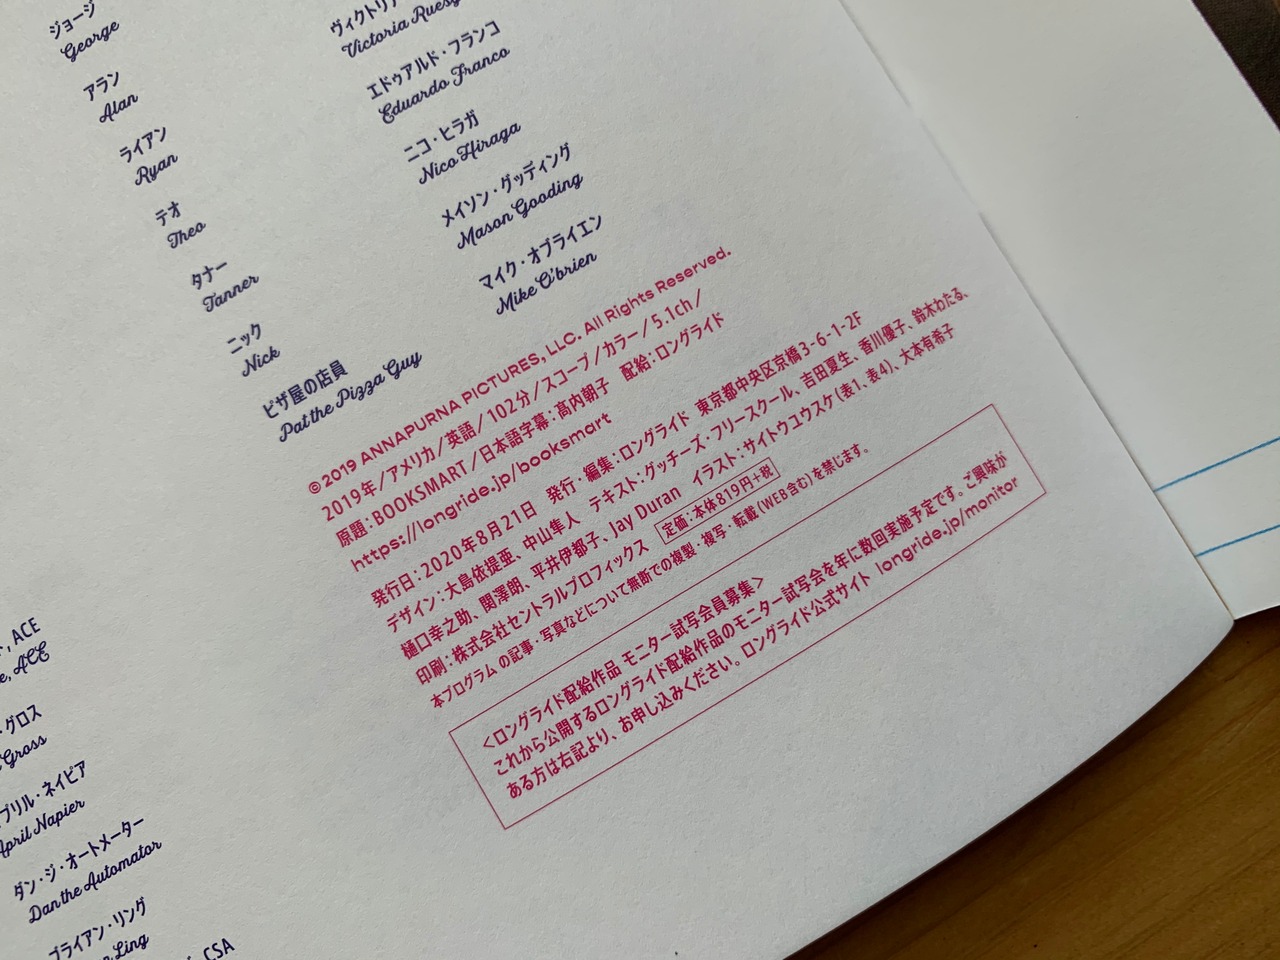 ジョージ
George
アラン
Alan
ライアン
Ryan
テオ
Theo
タナー
Tanner
ニック
Nick
ピザ屋の店員
Pat the Pizza Guy
Victoria
エドゥアルド・フランコ
Eduardo Franco
ニコ・ヒラガ
Nico Hiraga
メイソン・グッディング
Mason Gooding
マイク・オブライエン
Mike O'brien
©2019 ANNAPURNA PICTURES, LLC. All Rights Reserved.
2019年/アメリカ/英語/102分/スコープ/カラー/5.1ch/
原題:BOOKSMART/日本語字幕:髙内朝子 配給:ロングライド
https://longride.jp/booksmart
発行日:2020年8月21日 発行・編集:ロングライド 東京都中央区京橋3-6-1-2F
デザイン:大島依提亜、中山隼人 テキスト:グッチーズ・フリースクール、吉田夏生、香川優子、鈴木わたる、
樋口幸之助、関澤朗、平井伊都子、Jay Duran イラスト:サイトウユウスケ(表1、表4)、大本有希子
印刷:株式会社セントラルプロフィックス 定価:本体819円+税
本プログラムの記事・写真などについて無断での複製・複写・転載(WEB含む)を禁じます。
<ロングライド配給作品 モニター試写会員募集>
これから公開するロングライド配給作品のモニター試写会を年に数回実施予定です。ご興味が
ある方は右記より、お申し込みください。ロングライド公式サイト longride.jp/monitor
, ACE
, ACE
・グロス
Gross
プリル・ネイピア
April Napier
ダン・ジ・オートメーター
Dan the Automator
ブライアン・リング
Ling
CSA